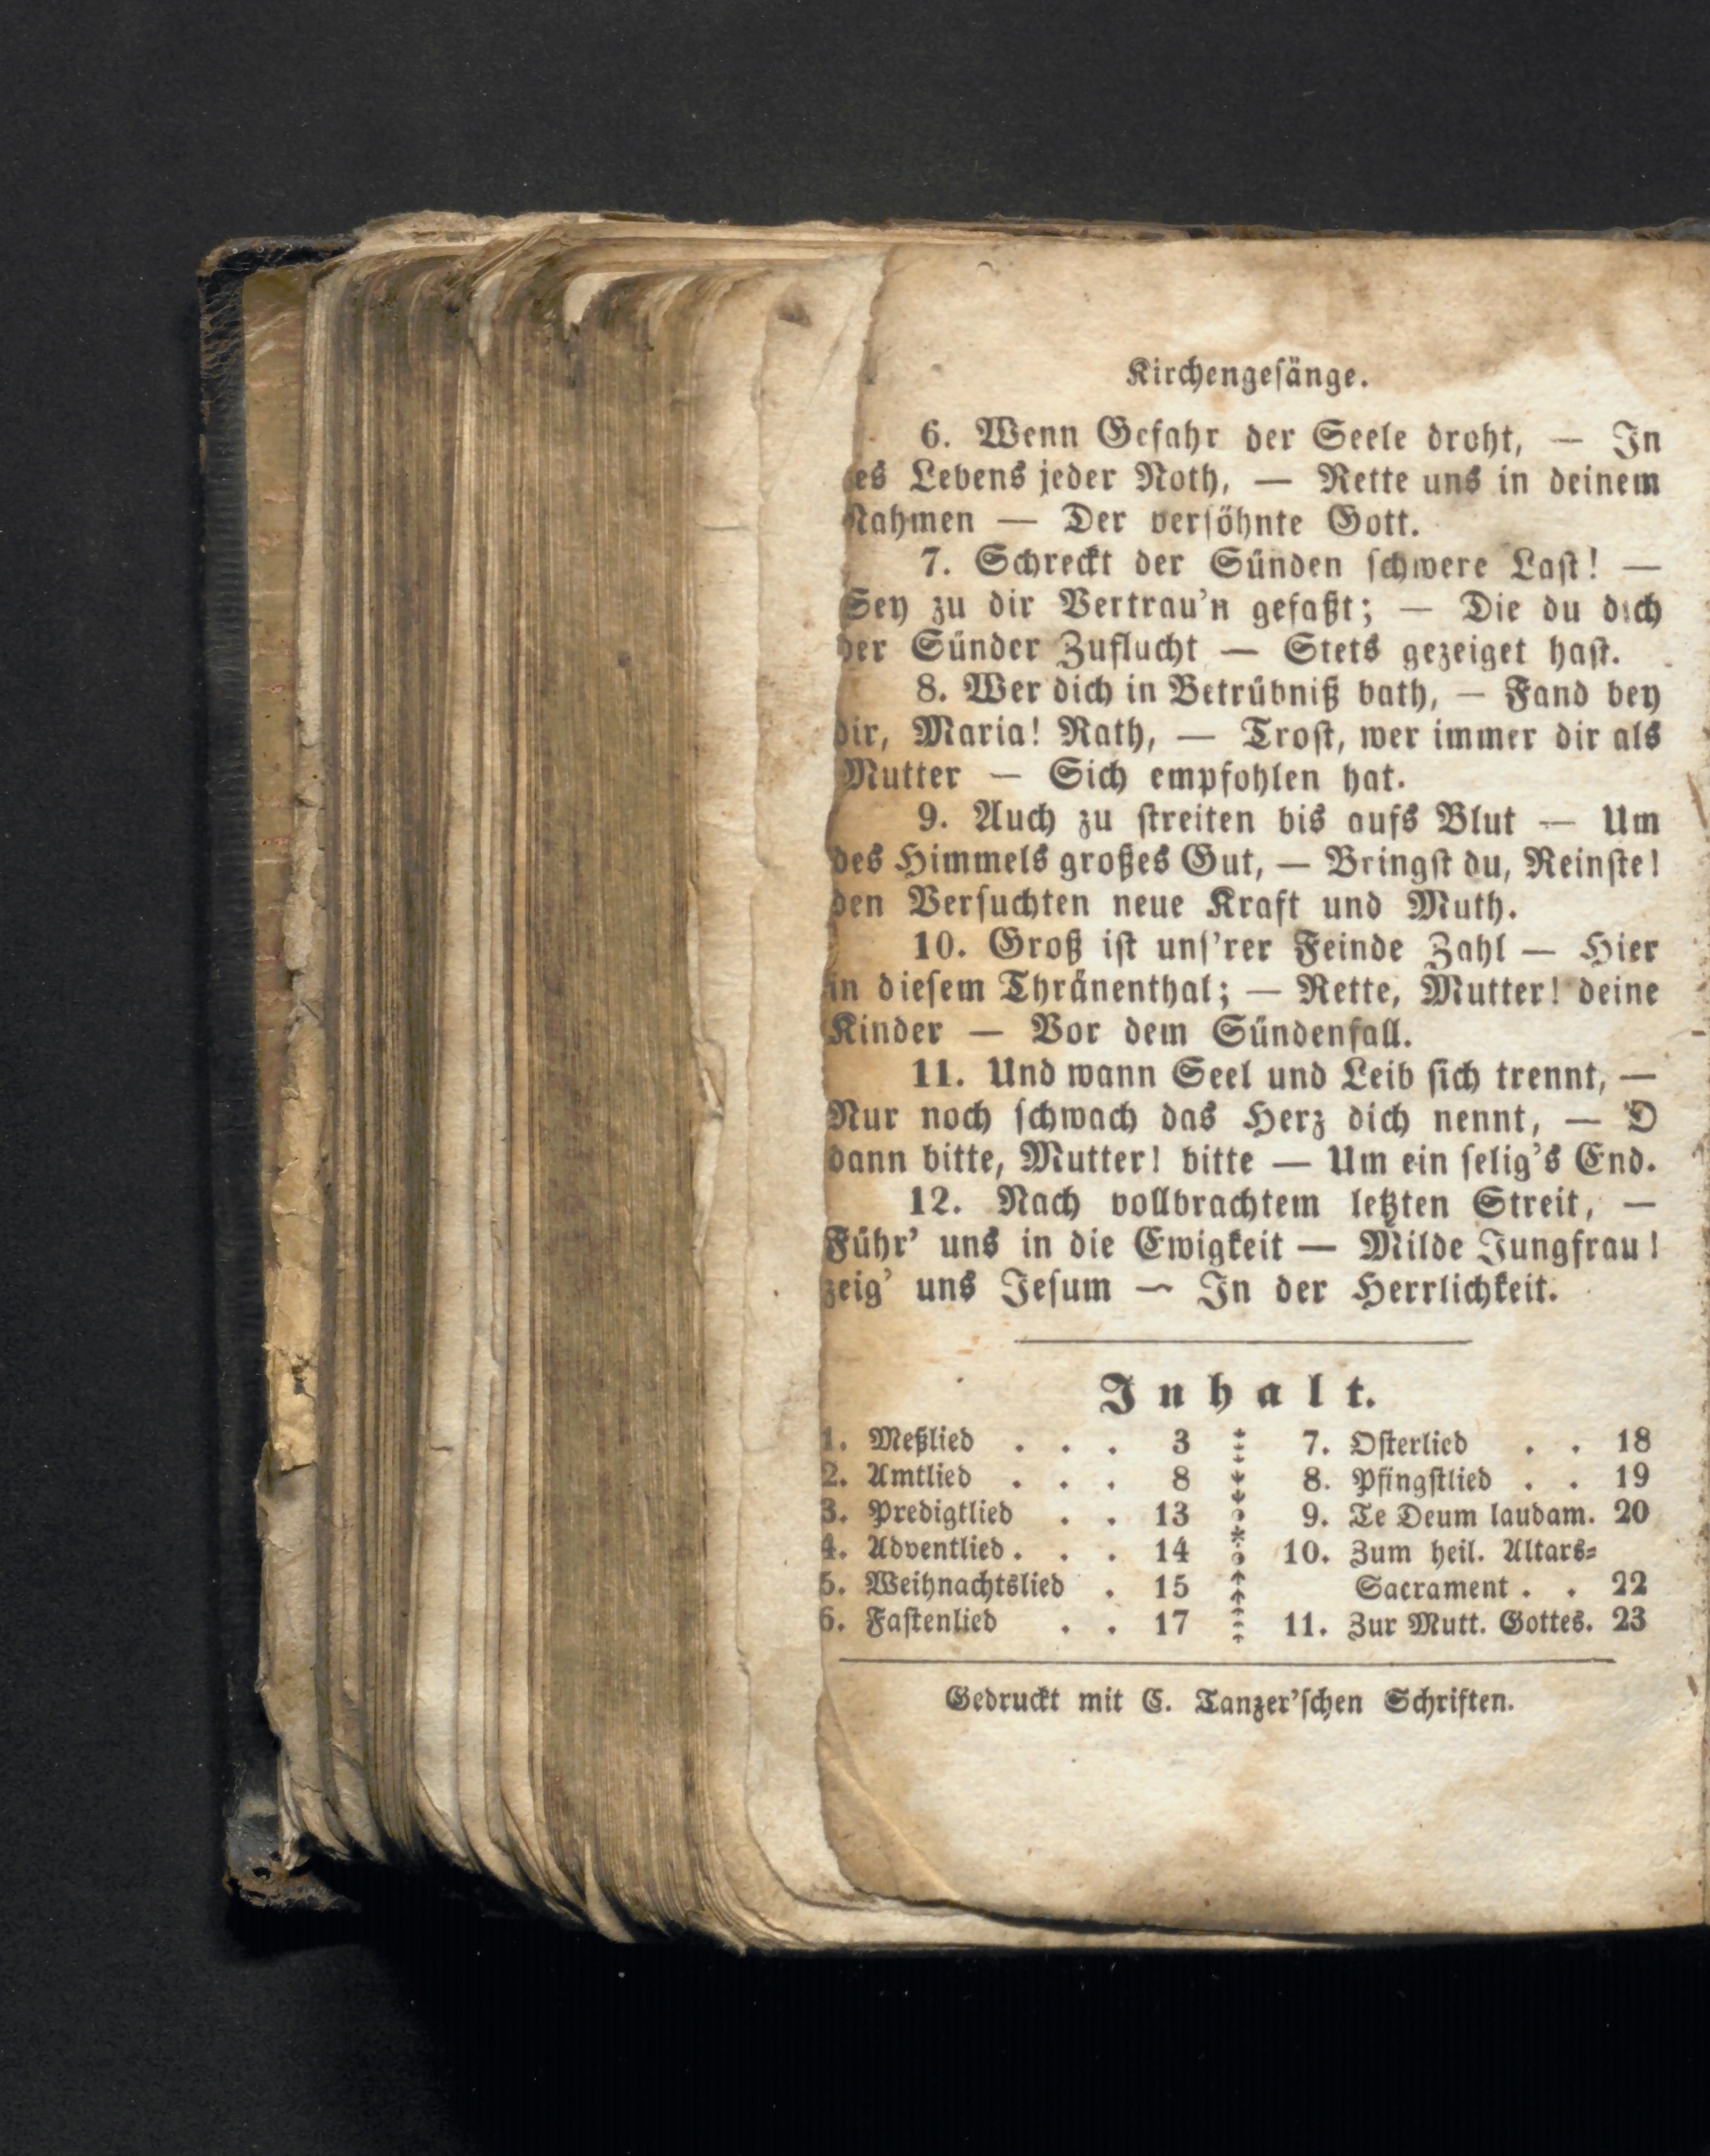 Kirchengeſänge.
6. Wenn Gefahr der Seele droht, — In
es Lebens jeder Noth, — Rette uns in deinem
Nahmen — Der verſöhnte Gott.
7. Schreckt der Sünden ſchwere Laſt! —
Sey zu dir Vertrau'n gefaßt; — Die du dich
der Sünder Zuflucht — Stets gezeiget haſt.
8. Wer dich in Betrübniß bath, — Fand bey
dir, Maria! Rath, — Troſt, wer immer dir als
Mutter — Sich empfohlen hat.
9. Auch zu ſtreiten bis aufs Blut — Um
des Himmels großes Gut, — Bringſt du, Reinſte!
den Verſuchten neue Kraft und Muth.
10. Groß iſt unſ'rer Feinde Zahl — Hier
in dieſem Thränenthal; — Rette, Mutter! deine
Kinder — Vor dem Sündenfall.
11. Und wann Seel und Leib ſich trennt, —
Nur noch ſchwach das Herz dich nennt, — O
dann bitte, Mutter! bitte — Um ein ſelig's End.
12. Nach vollbrachtem letzten Streit, —
Führ' uns in die Ewigkeit — Milde Jungfrau!
zeig' uns Jeſum — In der Herrlichkeit.
Inhalt.
1. Meßlied . . . 3
2. Amtlied . . . 8
3. Predigtlied . . 13
4. Adventlied . . . 14
5. Weihnachtslied . 15
6. Faſtenlied . . 17
7. Oſterlied . . 18
8. Pfingſtlied . . 19
9. Te Deum laudam. 20
10. Zum heil. Altars=
Sacrament . . 22
11. Zur Mutt. Gottes. 23
Gedruckt mit C. Tanzer'ſchen Schriften.